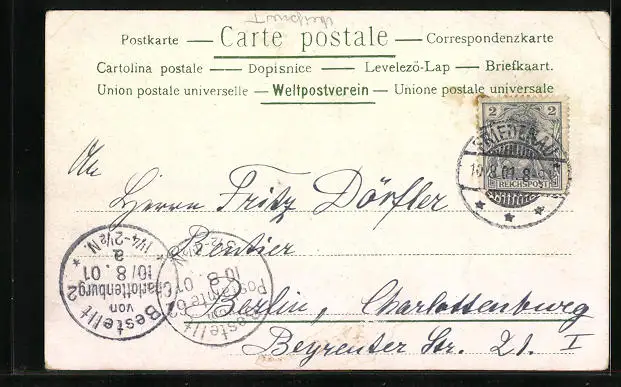 Postkarte — Carte postale — Correspondenzkarte
Cartolina postale —— Dopisnice — Levelező-Lap — Briefkaart.
Union postale universelle — Weltpostverein — Unione postale universale
2 2
REICHSPOST
10.8.01. 8-
An
Herrn Fritz Dörfler
Rentier
Berlin, Charlottenburg
Beyreuter Str. 21. I
Bestellt
von
Charlottenburg 2
10/8.01
a
1¼-2½N.
Bestellt
vom
Postamte 62
10.8.01